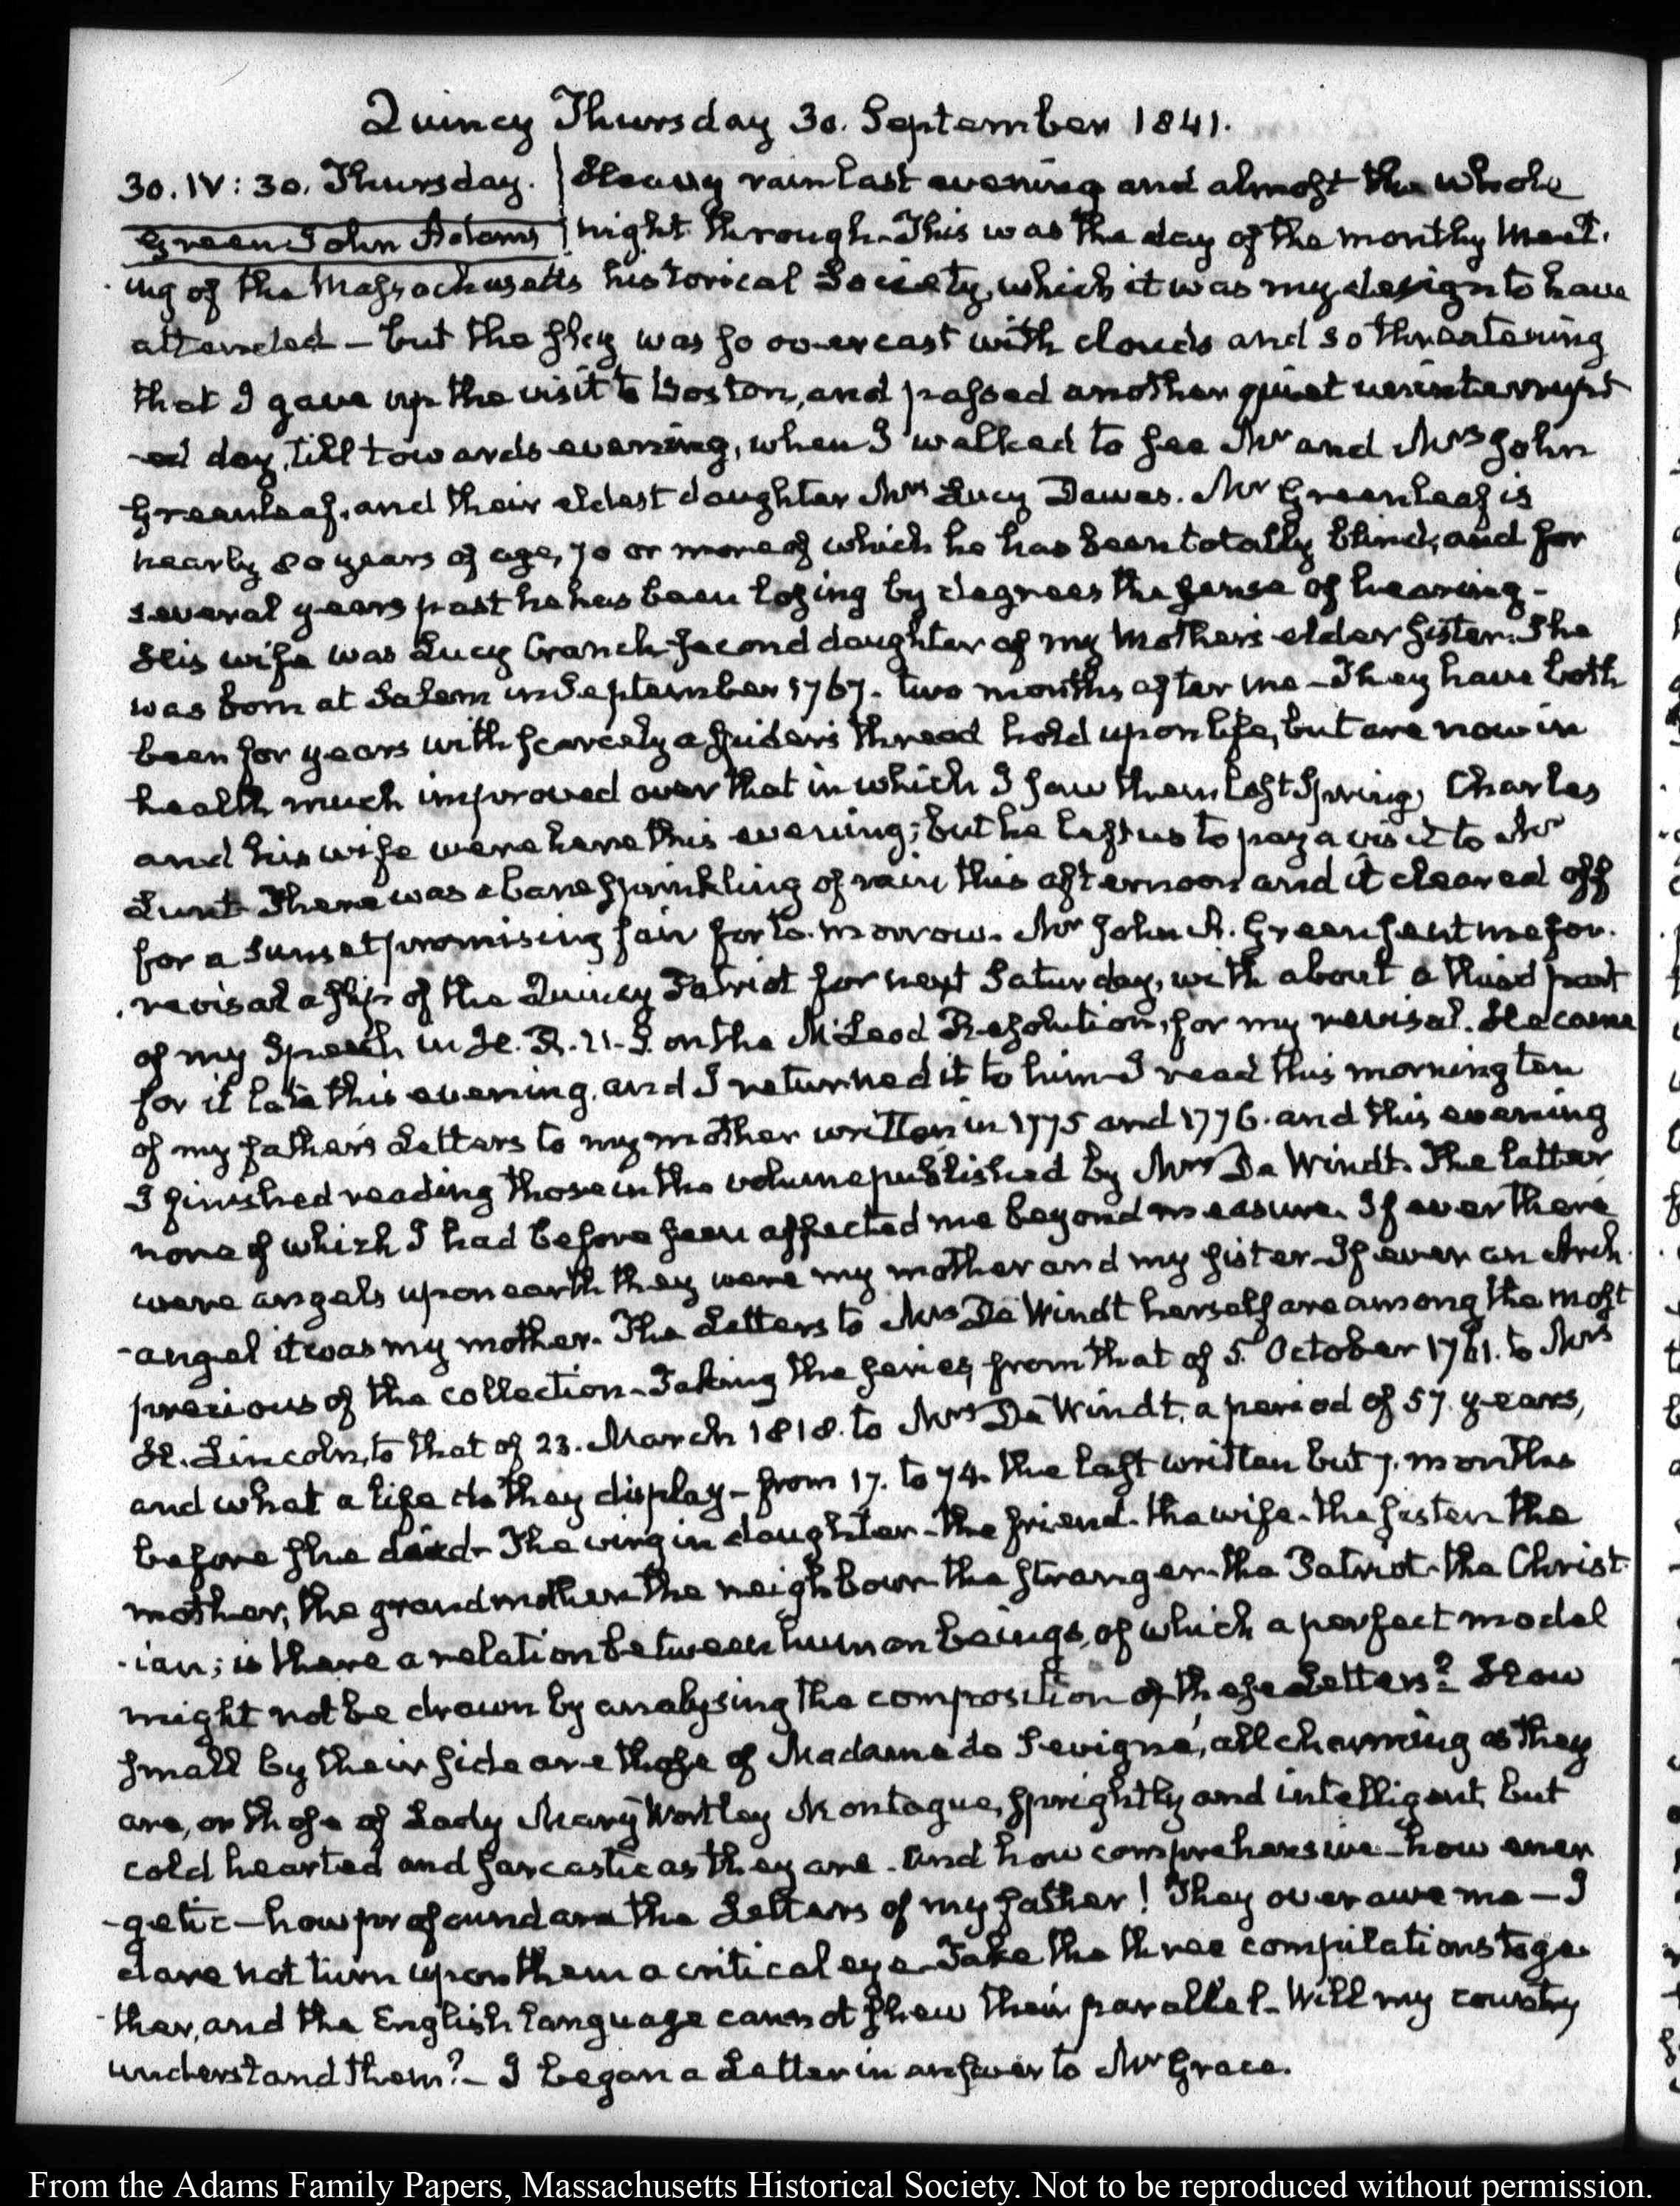 Quincy Thursday 30. September 1841.
30. IV: 30. Thursday. Heavy rain last evening and almost the whole
Green John Adams night through. This was the day of the monthly meet-
ing of the Massachusetts historical Society, which it was my design to have
attended – but the sky was so overcast with clouds and so threatening
that I gave up the visit to Boston, and passed another quiet uninterrupt
-ed day, till towards evening, when I walked to see Mr and Mrs John
Greenleaf, and their eldest daughter Mrs Lucy Dawes. Mr Greenleaf is
nearly 80 years of age, 70 or more of which he has been totally blind, and for
several years past he has been losing by degrees the sense of hearing –
His wife was Lucy Cranch second daughter of my Mother's elder sister. She
was born at Salem in September 1767. two months after me – They have both
been for years with scarcely a spider's thread hold upon life, but are now in
health much improved over that in which I saw them last Spring. Charles
and his wife were here this evening; but he left us to pay a visit to Mr
Lunt. There was a bare sprinkling of rain this afternoon and it cleared off
for a sunset promising fair for to-morrow. Mr John A. Green sent me for
revisal a slip of the Quincy Patriot for next Saturday, with about a third part
of my Speech in H. R. U. S. on the McLeod Resolution, for my revisal. He came
for it late this evening, and I returned it to him – I read this morning ten
of my father's Letters to my mother written in 1775 and 1776. and this evening
I finished reading those in the volume published by Mrs De Windt. The latter
none of which I had before seen affected me beyond measure. If ever there
were angels upon earth they were my mother and my sister – If ever an Arch
-angel it was my mother. The Letters to Mrs De Windt herself are among the most
precious of the collection – Taking the series from that of 5. October 1761. to Mrs
H. Lincoln, to that of 23. March 1818. to Mrs De Windt, a period of 57. years,
and what a life do they display – from 17. to 74. the last written but 7. months
before she died – The virgin daughter – the friend – the wife – the sister – the
mother, the grandmother – the neighbour – the stranger – the Patriot – the Christ
-ian; is there a relation between human beings, of which a perfect model
might not be drawn by analysing the composition of these Letters? How
small by their side are those of Madame de Sevigné, all charming as they
are, or those of Lady Mary Wortley Montague, sprightly and intelligent, but
cold hearted and sarcastic as they are. And how comprehensive – how ener
-getic – how profound are the Letters of my father! They overawe me – I
dare not turn upon them a critical eye – Take the three compilations toge
-ther, and the English language cannot shew their parallel – Will my country
understand them? – I began a Letter in answer to Mr Grace.
From the Adams Family Papers, Massachusetts Historical Society. Not to be reproduced without permission.